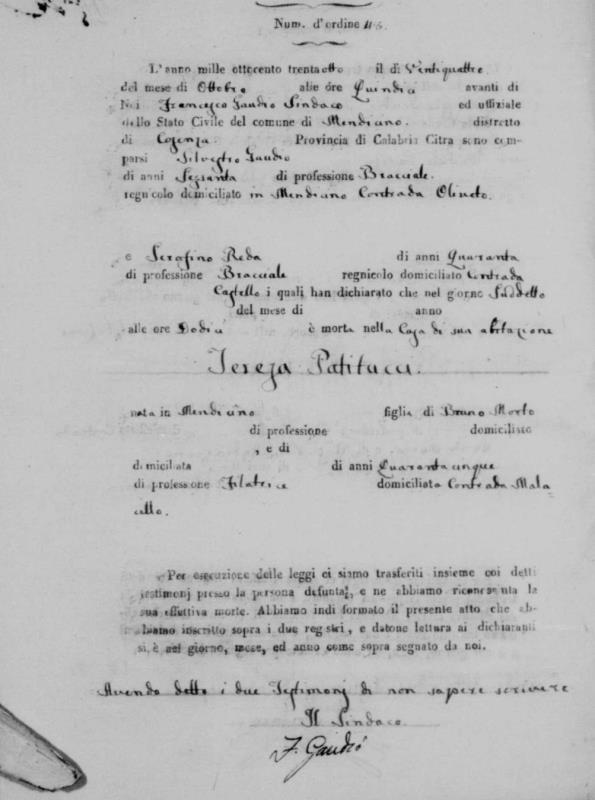 Num. d'ordine 46.
L'anno mille ottocento trentaotto il di Ventiquattro
del mese di Ottobro alle ore Quindici avanti di
Noi Francesco Gaudio Sindaco ed uffiziale
dello Stato Civile del comune di Mendicino distretto
di Cosenza. Provincia di Calabria Citra sono com-
parsi Silvestro Gaudio
di anni Sessanta di professione Bracciale.
regnicolo domiciliato in Mendicino Contrada Oliveto.
e Serafino Reda di anni Quaranta
di professione Bracciale regnicolo domiciliato Contrada
Castello i quali han dichiarato che nel giorno Suddetto
del mese di anno
alle ore Dodici è morta nella Casa di sua abitazione
Teresa Patitucci.
nata in Mendicino figlia di Bruno Morto
di professione domiciliato
, e di
domiciliata di anni Quarantacinque
di professione Filatrice domiciliata Contrada Mala
cillo.
Per esecuzione delle leggi ci siamo trasferiti insieme coi detti
testimonj presso la persona defunta, e ne abbiamo riconosciuta la
sua effettiva morte. Abbiamo indi formato il presente atto che ab-
biamo inscritto sopra i due registri, e datone lettura ai dichiaranti
si è nel giorno, mese, ed anno come sopra segnato da noi.
Avendo detto i due Testimonj di non sapere scrivere
Il Sindaco
F. Gaudio